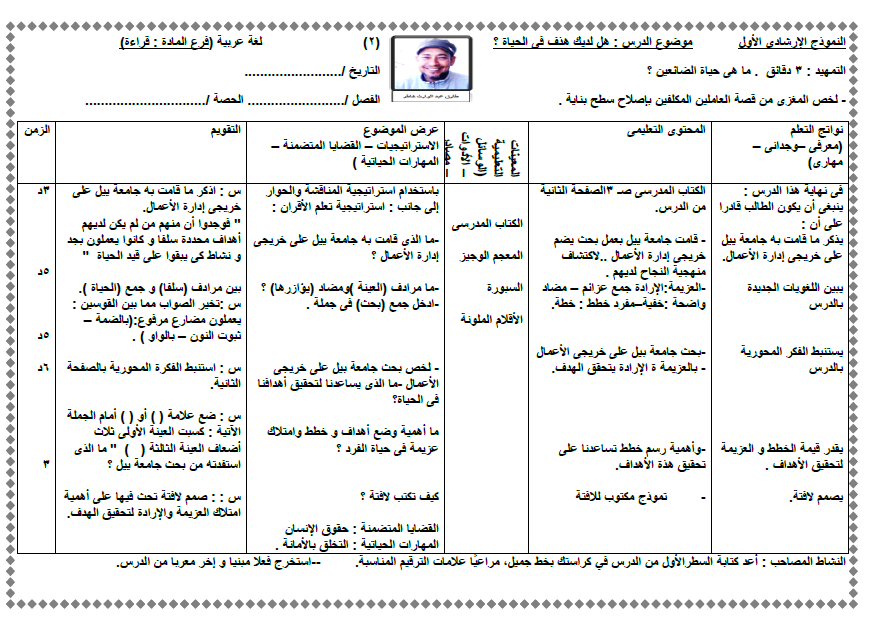 النموذج الإرشادى الأول
موضوع الدرس : هل لديك هدف فى الحياة ؟
(٢)
لغة عربية (فرع المادة : قراءة)
التمهيد : ٣ دقائق . ما هى حياة الضائعين ؟
التاريخ /.........................
- لخص المغزى من قصة العاملين المكلفين بإصلاح سطح بناية .
الفصل /......................... الحصة /...............................
نواتج التعلم
(معرفى –وجدانى –
مهارى)
المحتوى التعليمى
المعينات
التعليمية
(الوسائل
– الأدوات
– مصادر
عرض الموضوع
الاستراتيجيات – القضايا المتضمنة –
المهارات الحياتية )
التقويم
الزمن
فى نهاية هذا الدرس :
ينبغى أن يكون الطالب قادرا
على أن :
يذكر ما قامت به جامعة بيل
على خريجى إدارة الأعمال.
يبين اللغويات الجديدة
بالدرس
يستنبط الفكر المحورية
بالدرس
يقدر قيمة الخطط و العزيمة
لتحقيق الأهداف .
يصمم لافتة.
الكتاب المدرسى صـ ٣الصفحة الثانية
من الدرس.
- قامت جامعة بيل بعمل بحث يضم
خريجى إدارة الأعمال ..لاكتشاف
منهجية النجاح لديهم .
-العزيمة:الإرادة جمع عزائم – مضاد
واضحة :خفية–مفرد خطط : خطة.
-بحث جامعة بيل على خريجى الأعمال
- بالعزيمة ة الإرادة يتحقق الهدف.
-وأهمية رسم خطط تساعدنا على
تحقيق هذة الأهداف.
- نموذج مكتوب للافتة
الكتاب المدرسى
المعجم الوجيز
السبورة
الأقلام الملونة
باستخدام استراتيجية المناقشة والحوار
إلى جانب : استراتيجية تعلم الأقران :
-ما الذى قامت به جامعة بيل على خريجى
إدارة الأعمال ؟
-ما مرادف (العينة )ومضاد (يؤازرها) ؟
-ادخل جمع (بحث) فى جملة .
- لخص بحث جامعة بيل على خريجى
الأعمال -ما الذى يساعدنا لتحقيق أهدافنا
فى الحياة؟
ما أهمية وضع أهداف و خطط وامتلاك
عزيمة فى حياة الفرد ؟
كيف تكتب لافتة ؟
القضايا المتضمنة : حقوق الإنسان
المهارات الحياتية : التخلق بالأمانة .
س : اذكر ما قامت به جامعة بيل على
خريجى إدارة الأعمال.
" فوجدوا أن منهم من لم يكن لديهم
أهداف محددة سلفا و كانوا يعملون بجد
و نشاط كى يبقوا على قيد الحياة "
بين مرادف (سلفا) و جمع (الحياة ).
س :تخير الصواب مما بين القوسين :
يعملون مضارع مرفوع:(بالضمة –
ثبوت النون – بالواو ) .
س : استنبط الفكرة المحورية بالصفحة
الثانية.
س : ضع علامة ( ) أو ( ) أمام الجملة
الآتية : كسبت العينة الأولى ثلاث
أضعاف العينة الثالثة ( ) " ما الذى
استفدته من بحث جامعة بيل ؟
س : : صمم لافتة تحث فيها على أهمية
امتلاك العزيمة والإرادة لتحقيق الهدف.
٣د
٥د
٥د
٦د
٣
النشاط المصاحب : أعد كتابة السطرالأول من الدرس في كراستك بخط جميل، مراعيًا علامات الترقيم المناسبة. --استخرج فعلا مبنيا و إخر معربا من الدرس.